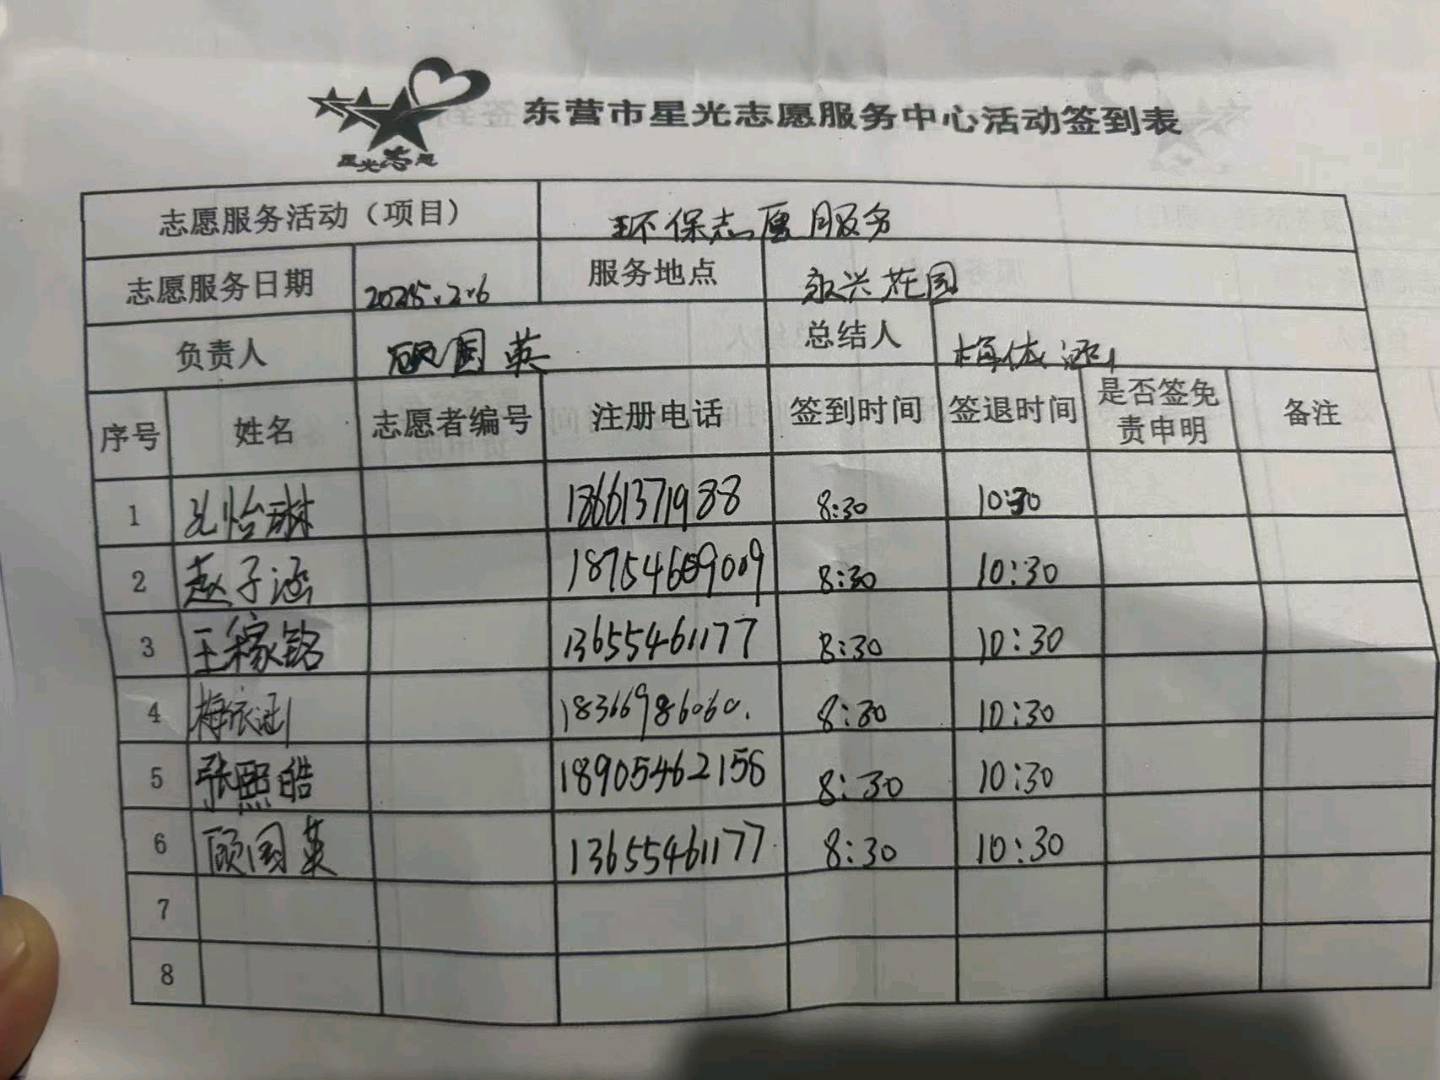 东营市星光志愿服务中心活动签到表
星光志愿
志愿服务活动（项目） 环保志愿服务
志愿服务日期 2025.2.6 服务地点 永兴花园
负责人 顾国英 总结人 梅依涵
序号 姓名 志愿者编号 注册电话 签到时间 签退时间 是否签免责申明 备注
1 孔怡琳 18661371988 8:30 10:30
2 赵子涵 18754609009 8:30 10:30
3 王稼铭 13655461177 8:30 10:30
4 梅依涵 18366986060. 8:30 10:30
5 张熙皓 18905462156 8:30 10:30
6 顾国英 13655461177 8:30 10:30
7
8